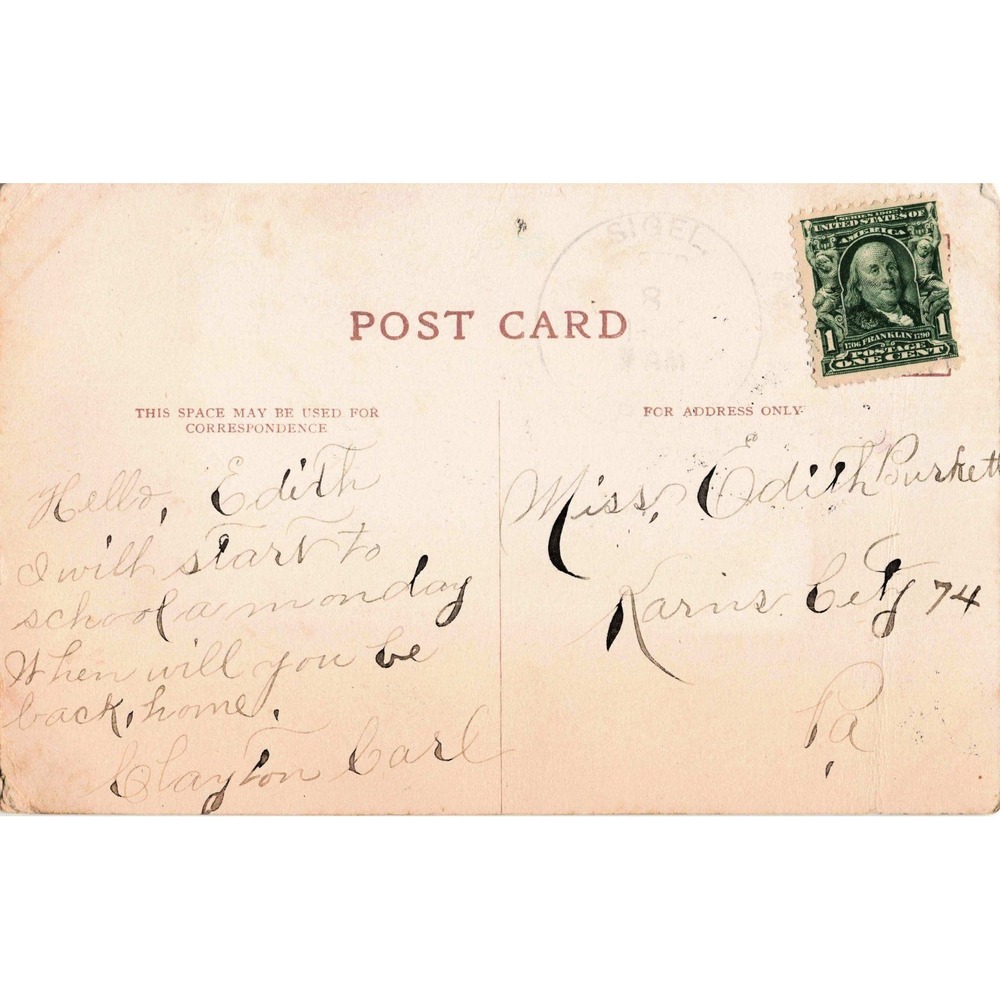 SIGEL,
8
AM
SERIES 1902
UNITED STATES OF
AMERICA
1706 FRANKLIN 1790
1 1
POSTAGE
ONE CENT
POST CARD
THIS SPACE MAY BE USED FOR
CORRESPONDENCE
FOR ADDRESS ONLY
Hello, Edith
I will start to
school a monday
When will you be
back, home.
Clayton Carl
Miss, Edith Burkett
Karns City 74
Pa